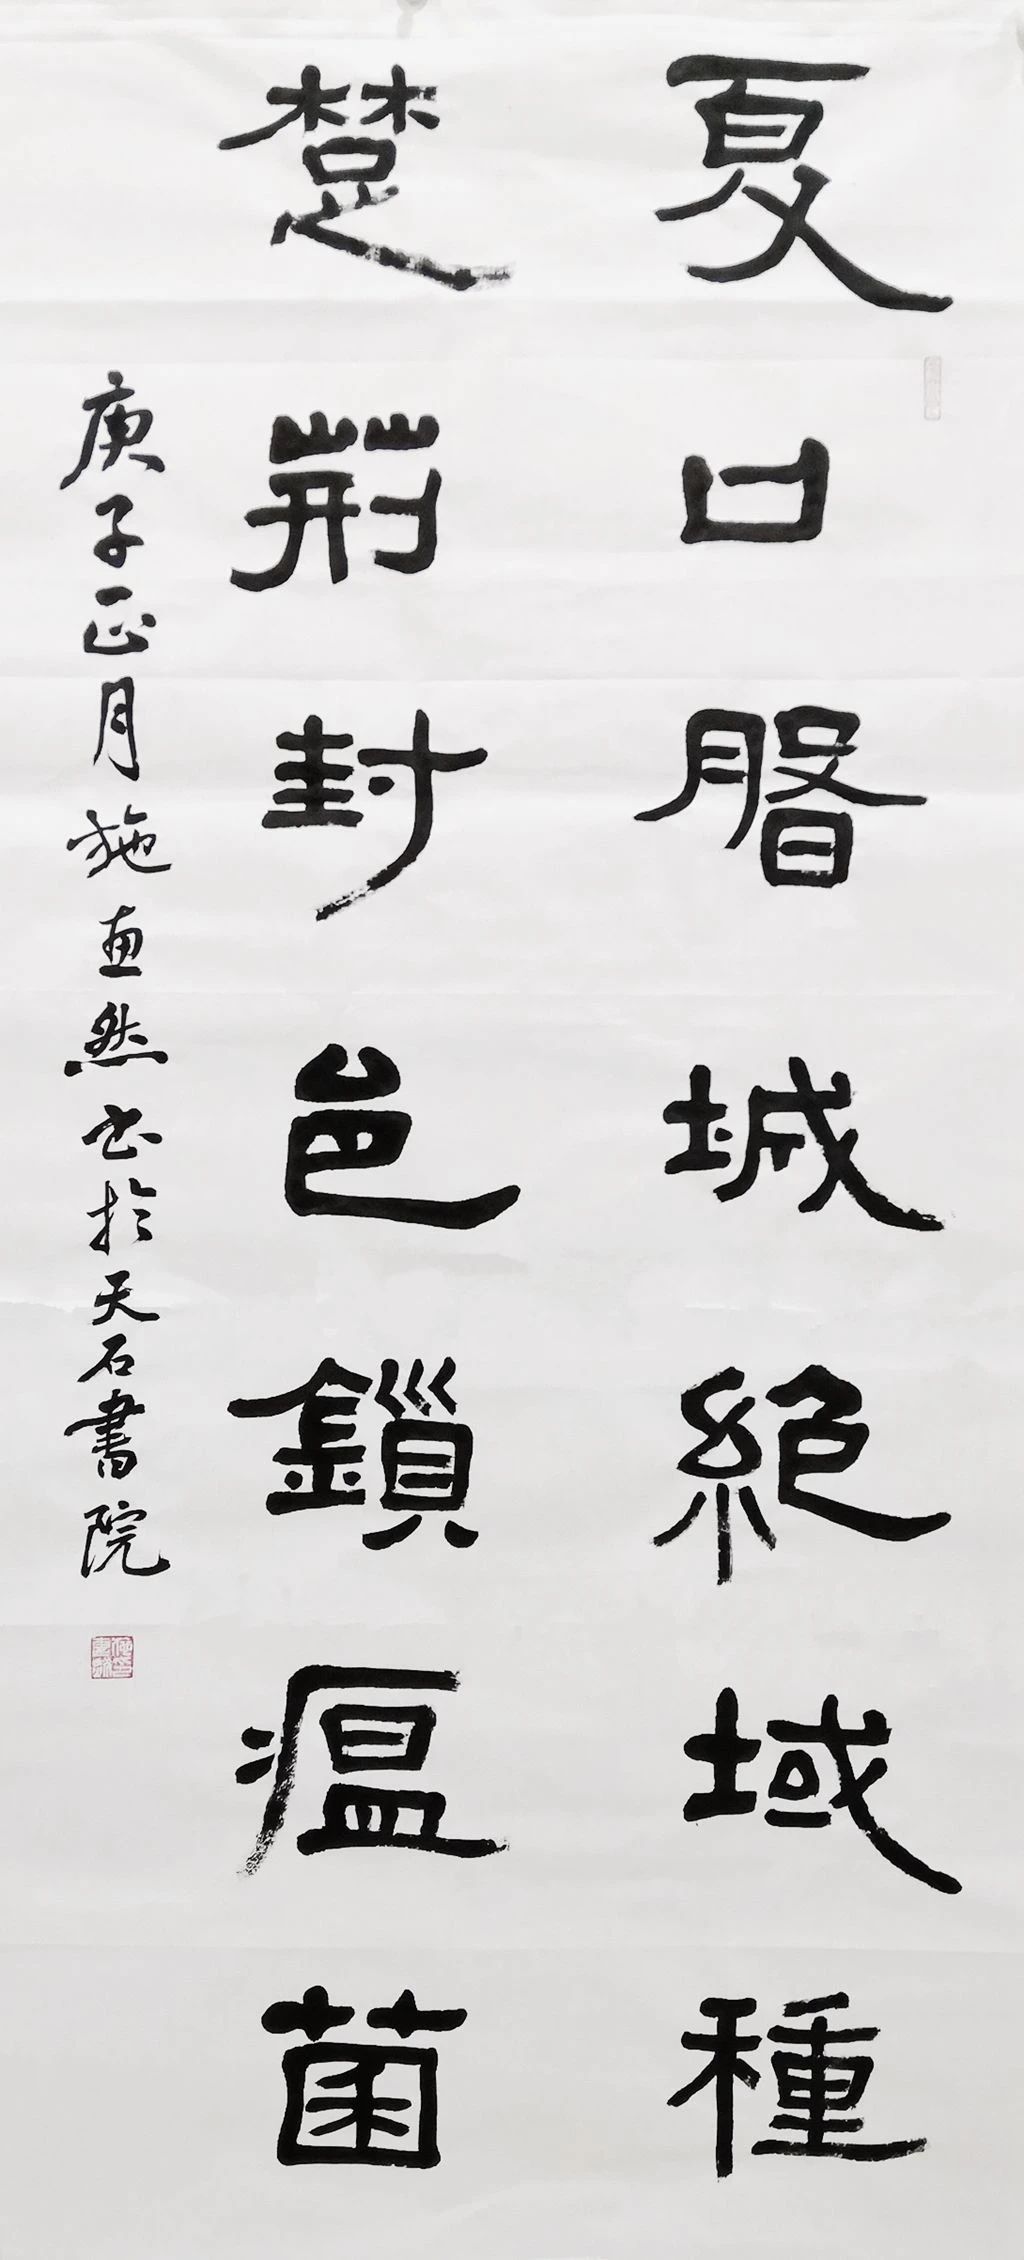 夏口城絕域種
楚荊封邑鎖瘟菌
庚子正月施然书於天石書院